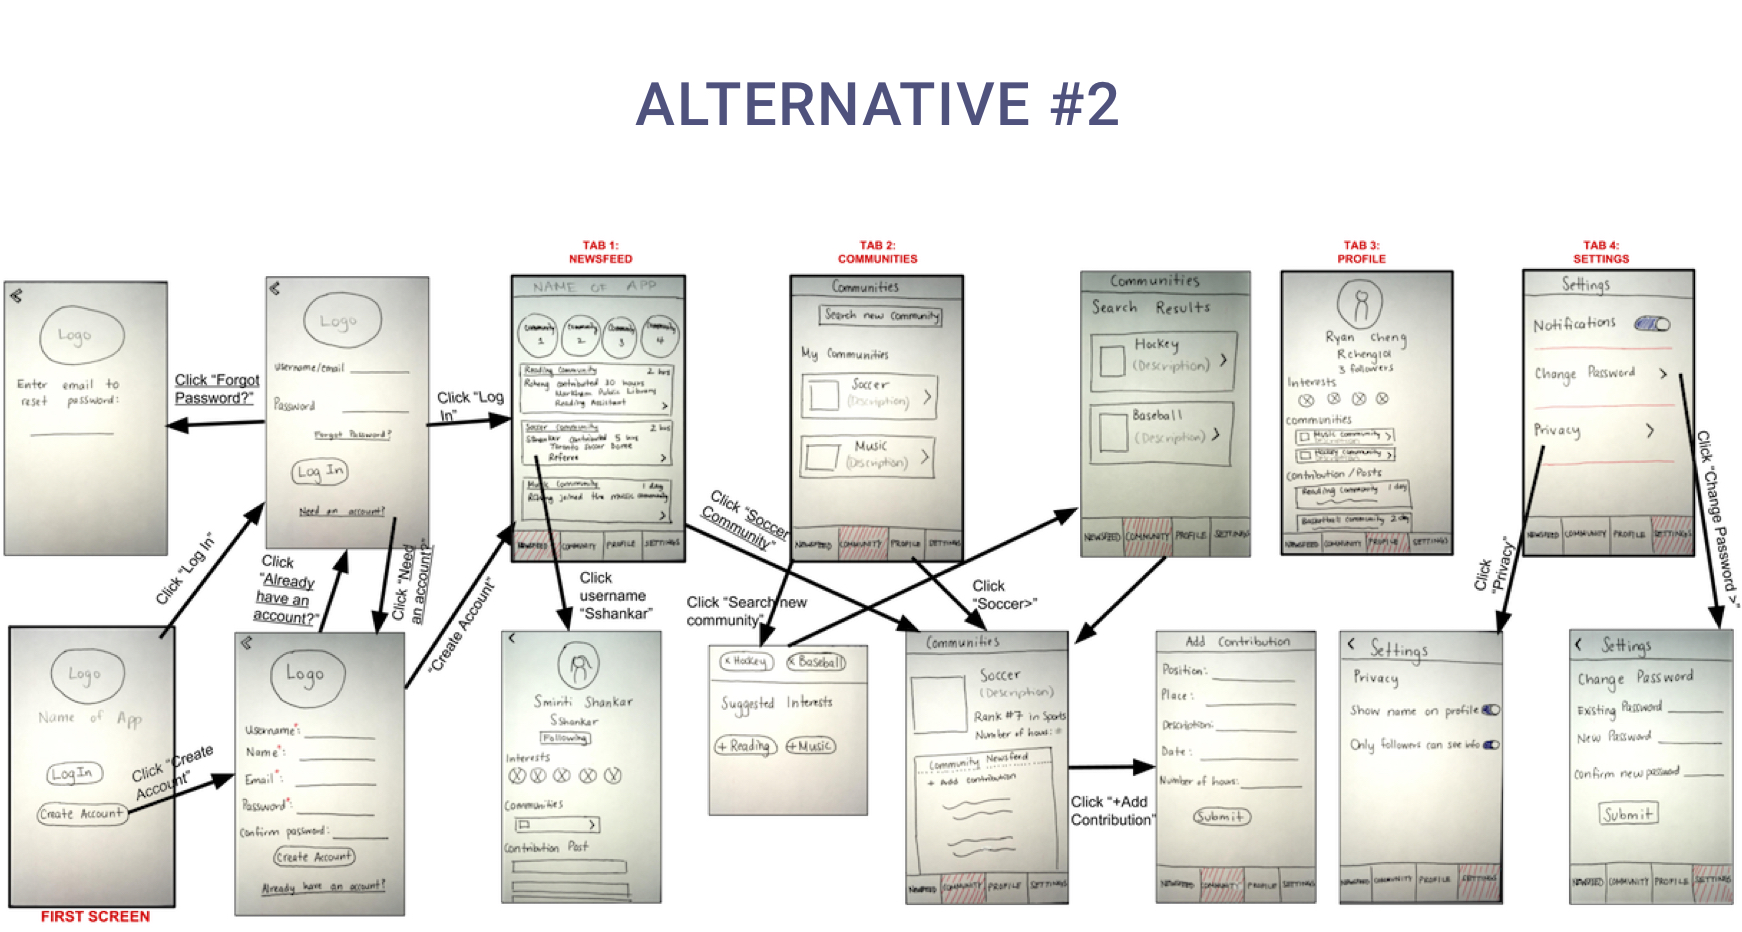 ALTERNATIVE #2
TAB 1:
NEWSFEED
TAB 2:
COMMUNITIES
TAB 3:
PROFILE
TAB 4:
SETTINGS
Logo
Enter email to
reset password:
Click "Forgot
Password?"
Logo
Username/email
Password
Forgot Password?
Log In
Need an account?
Click "Log
In"
NAME OF APP
Community
1
Community
2
Community
3
Community
4
Reading Community 2 hrs
Rcheng contributed 10 hours
Markham Public Library
Reading Assistant
Soccer Community 2 hrs
SShankar contributed 5 hrs
Toronto Soccer Dome
Referee
Music Community 1 day
Rcheng joined the music community
NEWSFEED COMMUNITY PROFILE SETTINGS
Communities
Search new Community
My Communities
Soccer
(Description)
Music
(Description)
NEWSFEED COMMUNITY PROFILE SETTINGS
Communities
Search Results
Hockey
(Description)
Baseball
(Description)
NEWSFEED COMMUNITY PROFILE SETTINGS
Ryan Cheng
Rcheng101
3 followers
Interests
Communities
Music Community
Description
Hockey Community
Contribution / Posts
Reading Community 1 day
Basketball Community 2 day
NEWSFEED COMMUNITY PROFILE SETTINGS
Settings
Notifications
Change Password >
Privacy >
NEWSFEED COMMUNITY PROFILE SETTINGS
Click "Log In"
Click
"Already
have an
account?"
Click "Need
an account?"
"Create Account"
Click
username
"Sshankar"
Click "Soccer
Community"
Click "Search new
community"
Click
"Soccer>"
Click
"Privacy"
Click "Change Password >"
Logo
Name of App
Log In
Create Account
FIRST SCREEN
Click "Create
Account"
Logo
Username*:
Name*:
Email*:
Password*:
Confirm password:
Create Account
Already have an account?
Smiriti Shankar
SShankar
Following
Interests
Communities
Contribution Post
x Hockey x Baseball
Suggested Interests
+ Reading + Music
Communities
Soccer
(Description)
Rank #7 in Sports
Number of hours: #
Community Newsfeed
+ Add contribution
NEWSFEED COMMUNITY PROFILE SETTINGS
Click "+Add
Contribution"
Add Contribution
Position:
Place:
Description:
Date:
Number of hours:
Submit
NEWSFEED COMMUNITY PROFILE SETTINGS
< Settings
Privacy
Show name on profile
Only followers can see info
NEWSFEED COMMUNITY PROFILE SETTINGS
< Settings
Change Password
Existing Password
New Password
Confirm new password
Submit
NEWSFEED COMMUNITY PROFILE SETTINGS